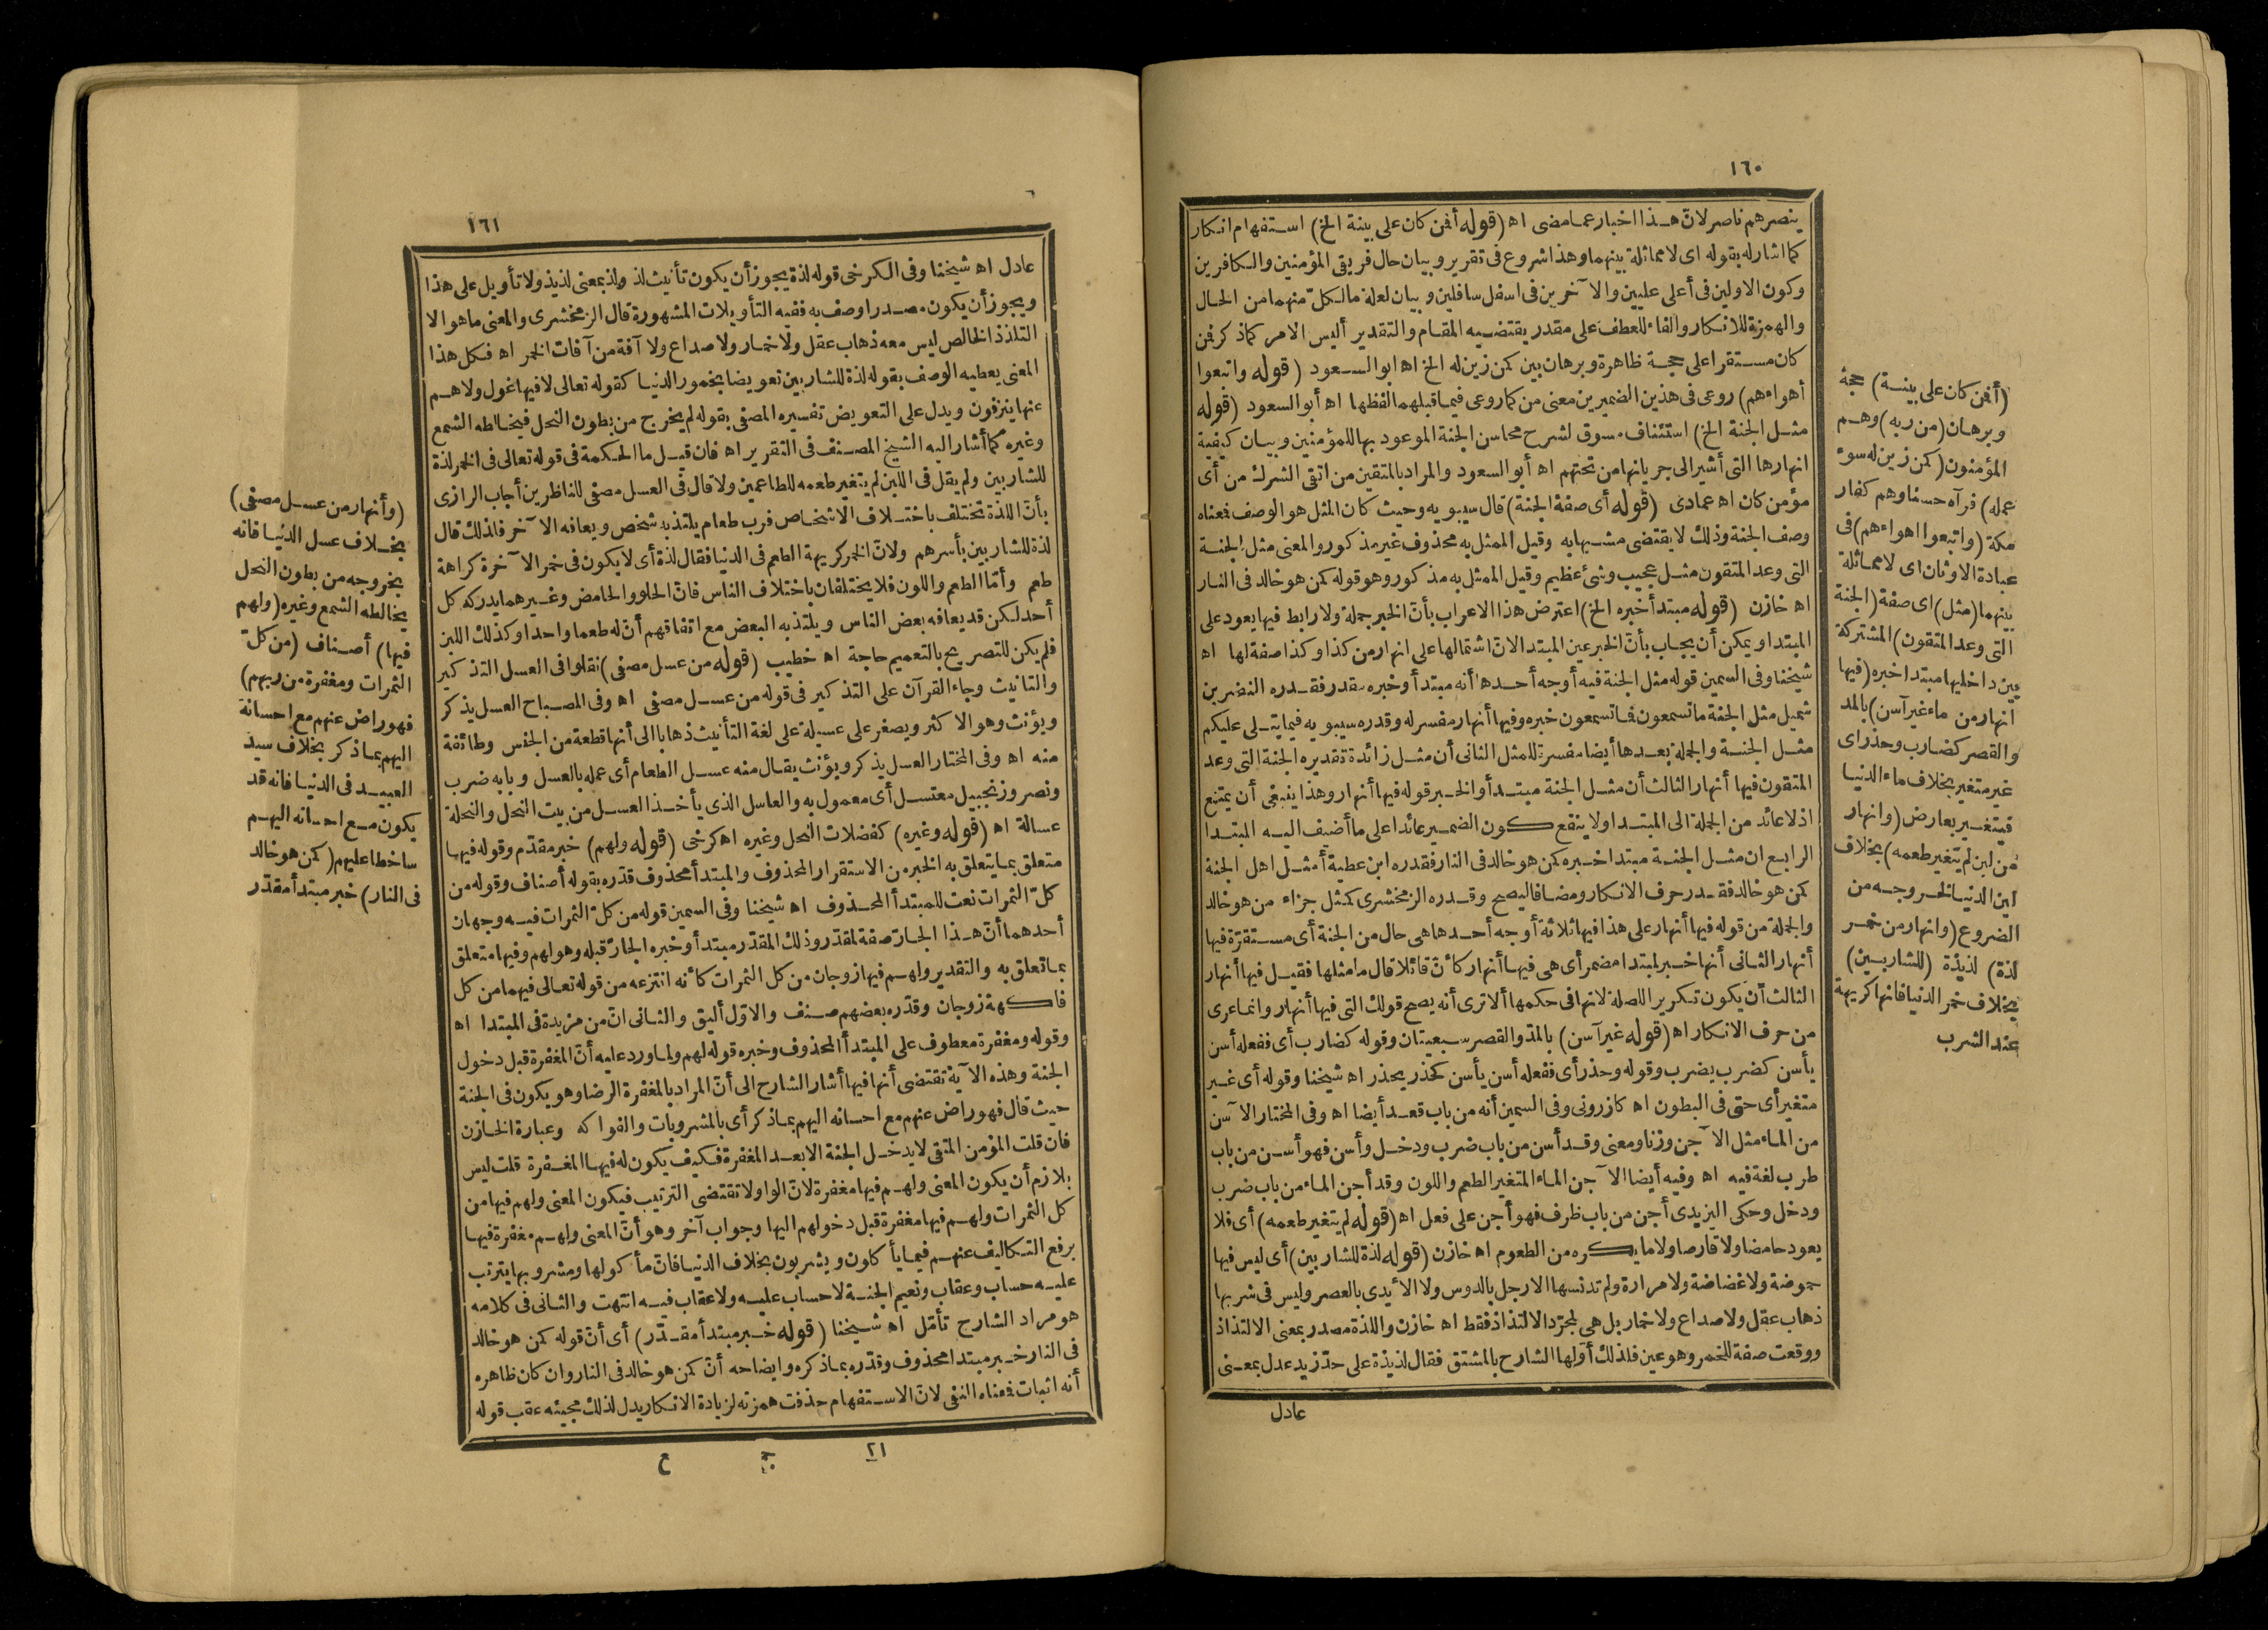 ١٦٠
ينصرهم ناصر لانّ هذا اخبار عما مضى اه (قوله أفمن كان على بينة الخ) استفهام انكار
كما اشار له بقوله اى لا مماثلة بينهما وهذا شروع فى تقرير وبيان حال فريقى المؤمنين والكافرين
وكون الاولين فى أعلى عليين والآخرين فى اسفل سافلين وبيان لعلة ما لكلّ منهما من الحال
والهمزة للانكار والفاء للعطف على مقدر يقتضيه المقام والتقدير أليس الامر كما ذكر فمن
كان مستقرا على حجة ظاهرة وبرهان بين كمن زين له الخ اه ابو السعود (قوله واتبعوا
أهواءهم) روعى فى هذين الضميرين معنى من كما روعى فيما قبلهما لفظها اه أبو السعود (قوله
مثل الجنة الخ) استئناف مسوق لشرح محاسن الجنة الموعود بها للمؤمنين وبيان كيفية
انهارها التى أشير الى جريانها من تحتهم اه أبو السعود والمراد بالمتقين من اتقى الشرك من أى
مؤمن كان اه عمادى (قوله أى صفة الجنة) قال سيبويه وحيث كان المثل هو الوصف فمعناه
وصف الجنة وذلك لا يقتضى مشبها به وقيل الممثل به محذوف غير مذكور والمعنى مثل الجنة
التى وعد المتقون مثل عجيب وشئ عظيم وقيل الممثل به مذكور وهو قوله كمن هو خالد فى النار
اه خازن (قوله مبتدأ خبره الخ) اعترض هذا الاعراب بأنّ الخبر جملة ولا رابط فيها يعود على
المبتدا ويمكن أن يجاب بأنّ الخبر عين المبتدا لانّ اشتمالها على انهار من كذا وكذا صفة لها اه
شيخنا وفى السمين قوله مثل الجنة فيه أوجه أحدها أنه مبتدأ وخبره مقدر فقدره النضر بن
شميل مثل الجنة ما تسمعون فما تسمعون خبره وفيها أنهار مفسر له وقدره سيبويه فيما يتلى عليكم
مثل الجنة والجملة بعدها أيضا مفسرة للمثل الثانى أن مثل زائدة تقديره الجنة التى وعد
المتقون فيها أنهار الثالث أن مثل الجنة مبتدأ والخبر قوله فيها أنهار وهذا ينبغى أن يمتنع
اذ لا عائد من الجملة الى المبتدا ولا ينفع كون الضمير عائدا على ما أضيف اليه المبتدا
الرابع ان مثل الجنة مبتدا خبره كمن هو خالد فى النار فقدره ابن عطية أمثل اهل الجنة
كمن هو خالد فقدر حرف الانكار ومضافا ليصح وقدره الزمخشرى كمثل جزاء من هو خالد
والجملة من قوله فيها أنهار على هذا فيها ثلاثة أوجه أحدها هى حال من الجنة أى مستقرّة فيها
أنهار الثانى أنها خبر لمبتدا مضمر أى هى فيها أنهار كأنّ قائلا قال ما مثلها فقيل فيها أنهار
الثالث أن يكون تكرير اللصلة لانها فى حكمها ألا ترى أنه يصح قولك التى فيها أنهار وانما عرى
من حرف الانكار اه (قوله غير آسن) بالمدّ والقصر سبعيتان وقوله كضارب أى ففعله أسن
يأسن كضرب يضرب وقوله وحذر أى ففعله أسن يأسن كحذر يحذر اه شيخنا وقوله أى غير
متغير أى حتى فى البطون اه كازرونى وفى السمين أنه من باب قعد أيضا اه وفى المختار الآسن
من الماء مثل الآجن وزنا ومعنى وقد أسن من باب ضرب ودخل وأسن فهو أسن من باب
طرب لغة فيه اه وفيه أيضا الآجن الماء المتغير الطعم واللون وقد أجن الماء من باب ضرب
ودخل وحكى اليزيدى أجن من باب ظرف فهو أجن على فعل اه (قوله لم يتغير طعمه) أى فلا
يعود حامضا ولا قارصا ولا ما يكره من الطعوم اه خازن (قوله لذة للشاربين) أى ليس فيها
حموضة ولا غضاضة ولا مرارة ولم تدنسها الارجل بالدوس ولا الأيدى بالعصر وليس فى شربها
ذهاب عقل ولا صداع ولا خمار بل هى لمجرّد الالتذاذ فقط اه خازن واللذة مصدر بمعنى الالتذاذ
ووقعت صفة للخمر وهو عين فلذلك أوّلها الشارح بالمشتق فقال لذيذة على حدّ زيد عدل بمعنى
عادل
(أفمن كان على بينة) حجة
وبرهان (من ربه) وهم
المؤمنون (كمن زين له سوء
عمله) فرآه حسنا وهم كفار
مكة (واتبعوا اهواءهم) فى
عبادة الاوثان اى لا مماثلة
بينهما (مثل) اى صفة (الجنة
التى وعد المتقون) المشتركة
بين داخليها مبتدا خبره (فيها
انهار من ماء غير آسن) بالمد
والقصر كضارب وحذر اى
غير متغير بخلاف ماء الدنيا
فيتغير بعارض (وانهار
من لبن لم يتغير طعمه) بخلاف
لبن الدنيا لخروجه من
الضروع (وانهار من خمر
لذة) لذيذة (للشاربين)
بخلاف خمر الدنيا فانها كريهة
عند الشرب
١٦١
عادل اه شيخنا وفى الكرخى قوله لذة يجوز أن يكون تأنيث لذ ولذ بمعنى لذيذ ولا تأويل على هذا
ويجوز أن يكون مصدرا وصف به ففيه التأويلات المشهورة قال الزمخشرى والمعنى ما هو الا
التلذذ الخالص ليس معه ذهاب عقل ولا خمار ولا صداع ولا آفة من آفات الخمر اه فكل هذا
المعنى يعطيه الوصف بقوله لذة للشاربين تعويضا بخمور الدنيا كقوله تعالى لا فيها غول ولا هم
عنها ينزفون ويدل على التعويض تفسيره المصفى بقوله لم يخرج من بطون النحل فيخالطه الشمع
وغيره كما أشار اليه الشيخ المصنف فى التقرير اه فان قيل ما الحكمة فى قوله تعالى فى الخمر لذة
للشاربين ولم يقل فى اللبن لم يتغير طعمه للطاعمين ولا قال فى العسل مصفى للناظرين أجاب الرازى
بأنّ اللذة تختلف باختلاف الاشخاص فرب طعام يلتذ به شخص ويعافه الآخر فلذلك قال
لذة للشاربين بأسرهم ولانّ الخمر كريهة الطعم فى الدنيا فقال لذة أى لا يكون فى خمر الآخرة كراهة
طعم وأمّا الطعم واللون فلا يختلفان باختلاف الناس فانّ الحلو والحامض وغيرهما يدركه كل
أحد لكن قد يعافه بعض الناس ويلتذ به البعض مع اتفاقهم أنّ له طعما واحدا وكذلك اللبن
فلم يكن للتصريح بالتعميم حاجة اه خطيب (قوله من عسل مصفى) نقلوا فى العسل التذكير
والتانيث وجاء القرآن على التذكير فى قوله من عسل مصفى اه وفى المصباح العسل يذكر
ويؤنث وهو الاكثر ويصغر على عسيلة على لغة التأنيث ذهابا الى أنها قطعة من الجنس وطائفة
منه اه وفى المختار العسل يذكر ويؤنث يقال منه عسل الطعام أى عمله بالعسل وبابه ضرب
ونصر وزنجبيل معتسل أى معمول به والعاسل الذى يأخذ العسل من بيت النحل والنحلة
عسالة اه (قوله وغيره) كفضلات النحل وغيره اه كرخى (قوله ولهم) خبر مقدّم وقوله فيها
متعلق بما يتعلق به الخبر من الاستقرار المحذوف والمبتدأ محذوف قدّره بقوله أصناف وقوله من
كلّ الثمرات نعت للمبتدأ المحذوف اه شيخنا وفى السمين قوله من كلّ الثمرات فيه وجهان
أحدهما أنّ هذا الجارّ صفة لمقدّر وذلك المقدّر مبتدأ وخبره الجارّ قبله وهو لهم وفيها متعلق
بما تعلق به والتقدير ولهم فيها زوجان من كل الثمرات كأنه انتزعه من قوله تعالى فيهما من كل
فاكهة زوجان وقدّره بعضهم صنف والاوّل أليق والثانى انّ من مزيدة فى المبتدا اه
وقوله ومغفرة معطوف على المبتدأ المحذوف وخبره قوله لهم ولما ورد عليه أنّ المغفرة قبل دخول
الجنة وهذه الآية تقتضى أنها فيها أشار الشارح الى أنّ المراد بالمغفرة الرضا وهو يكون فى الجنة
حيث قال فهو راض عنهم مع احسانه اليهم بما ذكر أى بالمشروبات والفواكه وعبارة الخازن
فان قلت المؤمن المتقى لا يدخل الجنة الا بعد المغفرة فكيف يكون له فيها المغفرة قلت ليس
بلازم أن يكون المعنى ولهم فيها مغفرة لانّ الواو لا تقتضى الترتيب فيكون المعنى ولهم فيها من
كل الثمرات ولهم فيها مغفرة قبل دخولهم اليها وجواب آخر وهو أنّ المعنى ولهم مغفرة فيها
برفع التكاليف عنهم فيما يأكلون ويشربون بخلاف الدنيا فانّ مأكولها ومشروبها يترتب
عليه حساب وعقاب ونعيم الجنة لا حساب عليه ولا عقاب فيه انتهت والثانى فى كلامه
هو مراد الشارح تأمّل اه شيخنا (قوله خبر مبتدأ مقدّر) أى أنّ قوله كمن هو خالد
فى النار خبر مبتدا محذوف وقدّره بما ذكره وايضاحه أنّ كمن هو خالد فى النار وان كان ظاهره
أنه اثبات فمعناه النفى لانّ الاستفهام حذفت همزته لزيادة الانكار يدل لذلك مجيئه عقب قوله
٢١ ج ع
(وأنهار من عسل مصفى)
بخلاف عسل الدنيا فانه
بخروجه من بطون النحل
يخالطه الشمع وغيره (ولهم
فيها) أصناف (من كلّ
الثمرات ومغفرة من ربهم)
فهو راض عنهم مع احسانة
اليهم بما ذكر بخلاف سيد
العبيد فى الدنيا فانه قد
يكون مع احسانه اليهم
ساخطا عليهم (كمن هو خالد
فى النار) خبر مبتدأ مقدّر